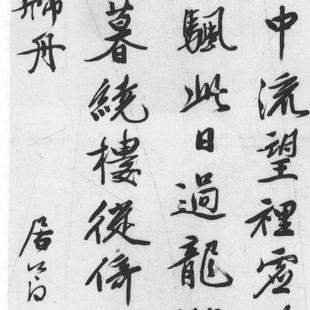 中流望裡虛
颿此日過龍
暮繞樓從倚
居